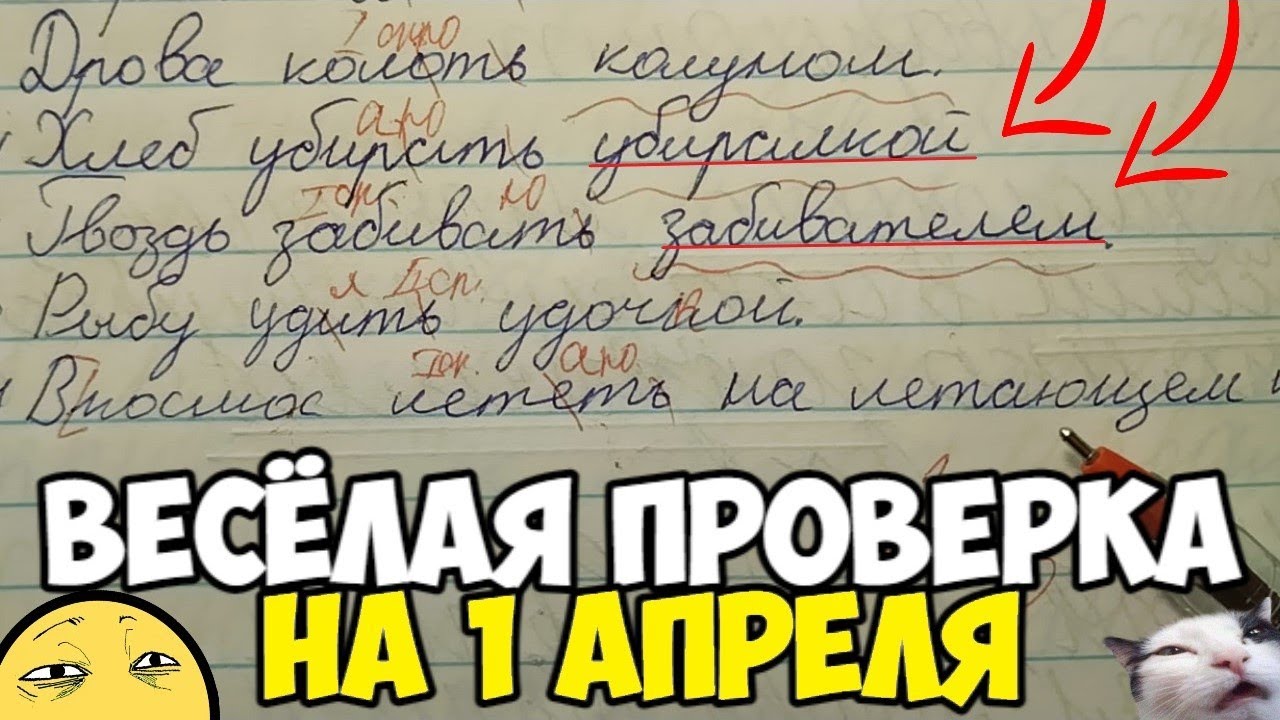 Дрова колоть колуном.
Хлеб убирать убиралкой
Гвоздь забивать забивателем.
Рыбу удить удочкой.
В космос лететь на летающем
ВЕСЁЛАЯ ПРОВЕРКА
НА 1 АПРЕЛЯ